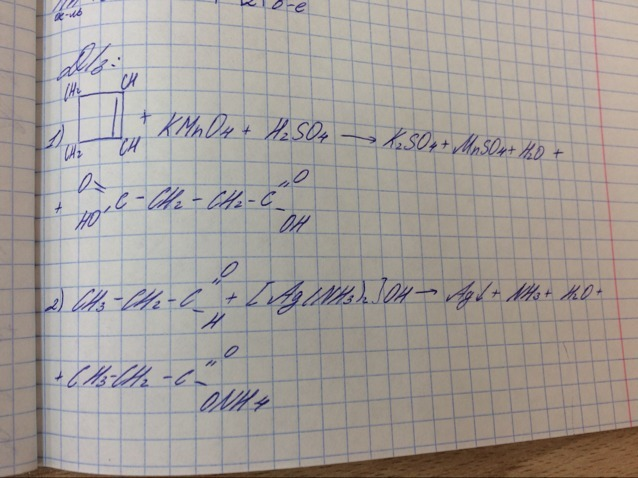 Д/з:
CH₂ CH
1) + KMnO₄ + H₂SO₄ → K₂SO₄ + MnSO₄ + H₂O +
CH₂ CH
+ O= HO C - CH₂ - CH₂ - C = O - OH
2) CH₃ - CH₂ - C = O - H + [Ag(NH₃)₂]OH → Ag↓ + NH₃ + H₂O +
+ CH₃ - CH₂ - C = O - ONH₄